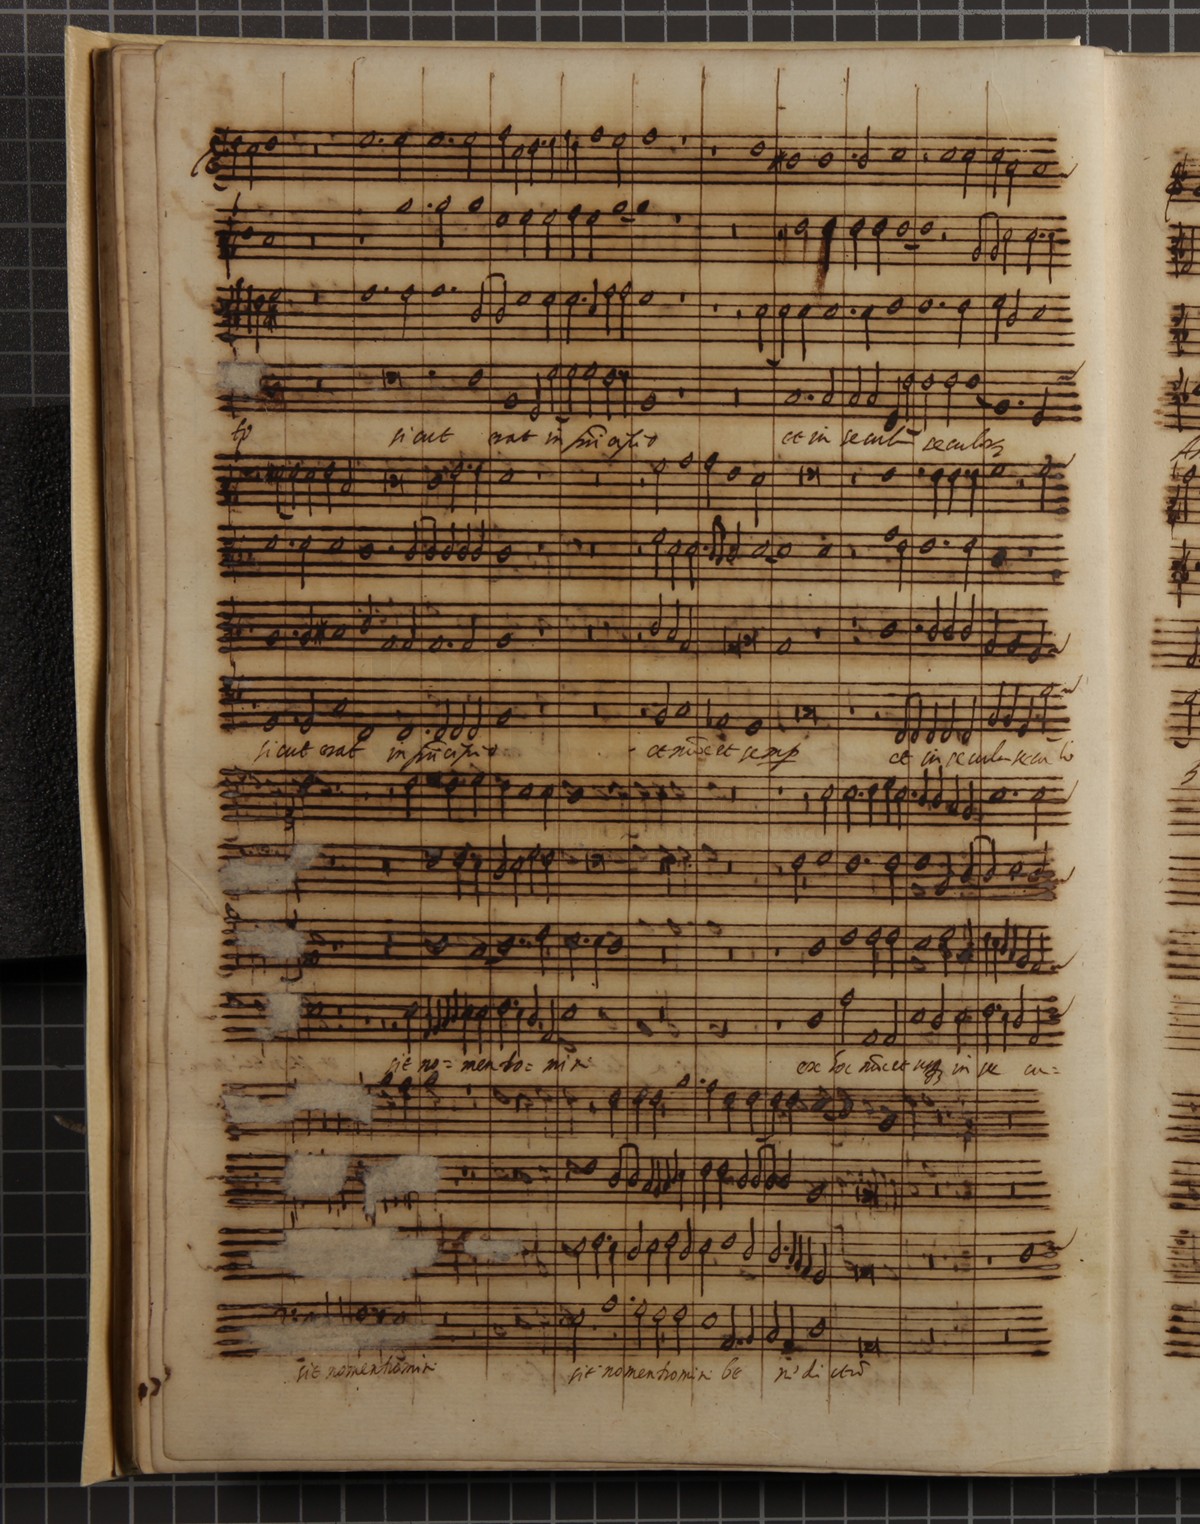 to sicut erat in principio et in seculum seculor
sicut erat in principio et nunc et semp et in seculu secu lo
sit no= men do= mini ex hoc nunc et usq in se cu=
sit nomen domini sit nomen domini be ne di ctu